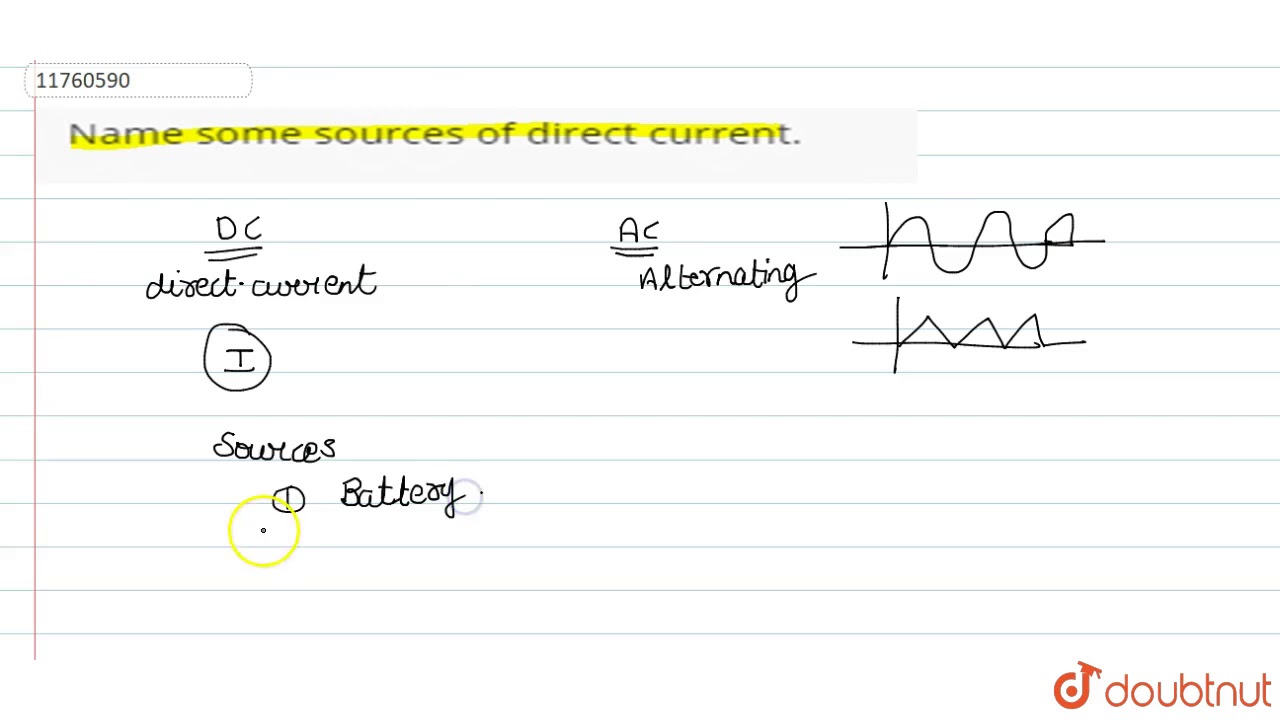 11760590
Name some sources of direct current.
DC
AC
direct current
Alternating
I
Sources
① Battery
doubtnut